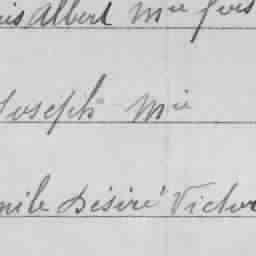 is Albert Mie
Joseph Mie
mile Désiré Victor